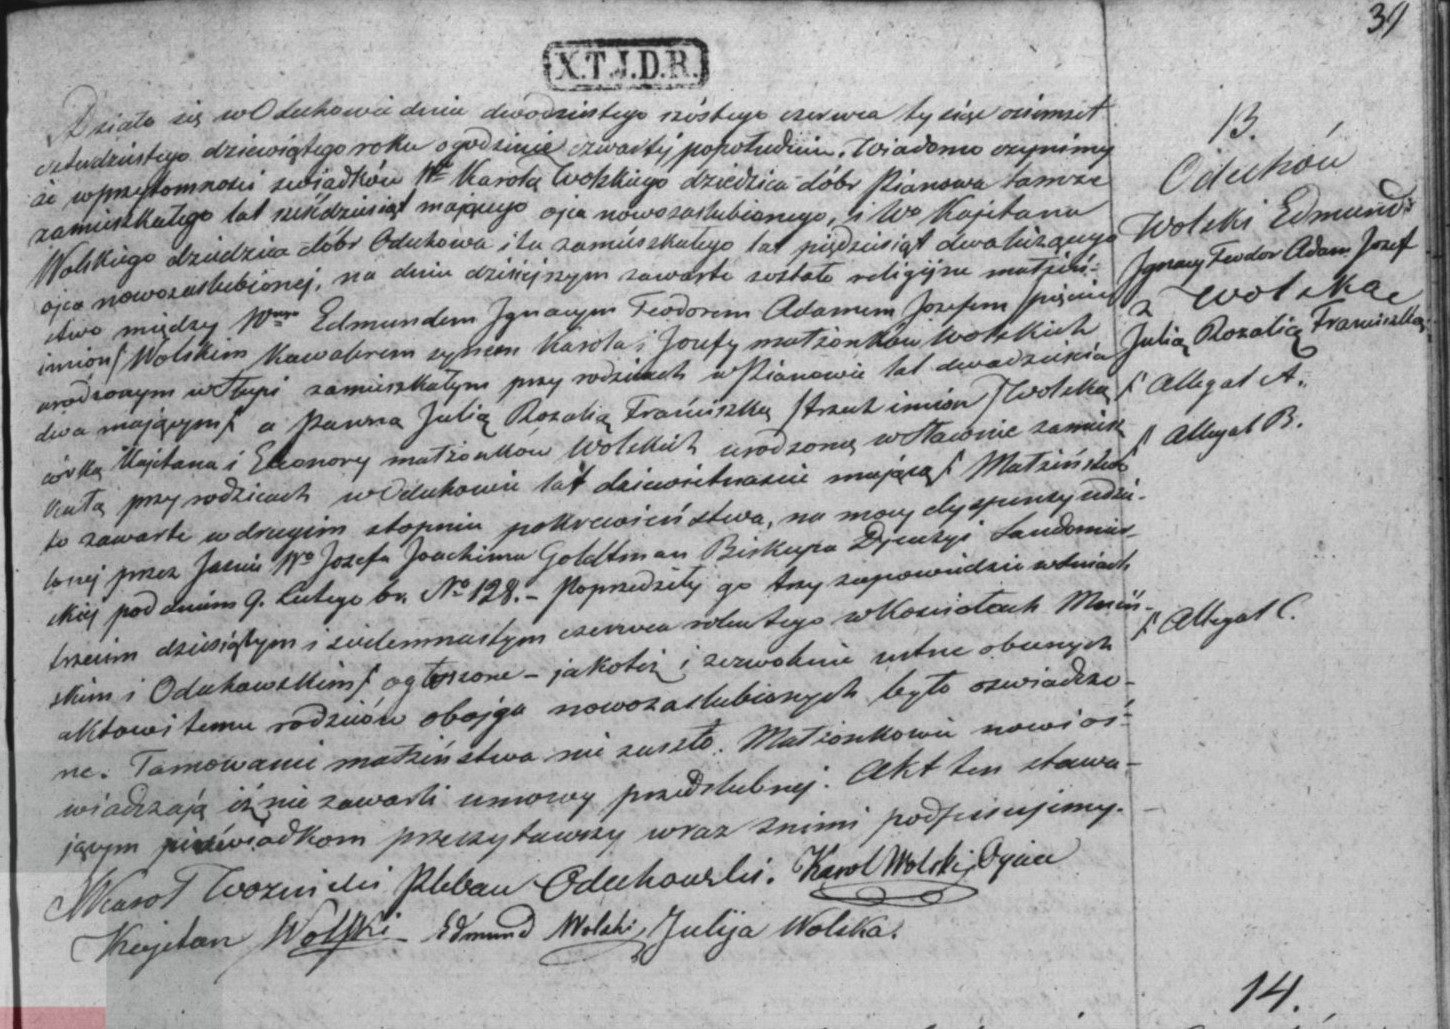 34
X.T.J.D.R.
13.
Oduchów
Wolski Edmund
Ignacy Teodor Adam Jozef
z Wolską
Julią Rozalią Franciszką
Działo się w Oduchowie dnia dwódziestego szóstego czerwca tysiąc ośmset
czterdziestego dziewiątego roku o godzinie czwartéj popołudniu. Wiadomo czynimy
że w przytomności świadków Wo Karola Wolskiego dziedzica dóbr Pianowa tamże
zamieszkałego lat sześćdziesiąt mającego ojca nowozaslubionego, i Wo Kajetana
Wolskiego dziedzica dóbr Oduchowa i tu zamieszkałego lat pięćdziesiąt dwa liczącego
ojca nowozaslubionej, na dniu dzisiejszym zawarte zostało religijne małżeń-
stwo między Wnym Edmundem Ignacym Teodorem Adamem Jozefem /pięciu
imion/ Wolskim Kawalerem synem Karola i Jozefy małżonków Wolskich
urodzonym w Słupi zamieszkałym przy rodzicach w Pianowie lat dwadzieścia
dwa mającym/ a Panną Julią Rozalią Franciszką /trzech imion/ Wolską / Allegat A.
córką Kajetana i Eleonory małżonków Wolskich urodzoną w Sławnie zamiesz / Allegat B.
kałą przy rodzicach w Oduchowie lat dziewietnaście mającą/ Małżeństwo
to zawarte w drugim stopniu pokrewieństwa, na mocy dyspensy udzie-
lonej przez Jaśnie Wo Jozefa Joachima Goldtman Biskupa Djecezyi Sandomir-
skiej pod dniem 9. Lutego br. No 128. – Poprzedziły go trzy zapowiedzie w dniach
trzecim dziesiątym i siedemnastym czerwca roku tego w Kościołach
skim i Oduchowskim/ ogłoszone – jakotéż i zezwolenie ustne obecnych / Allegat C.
aktowi temu rodziców obojga nowozaslubionych było oswiadczo-
ne. Tamowanie małżeństwa nie zaszło. Małżonkowie nowi oś-
wiadczają iż nie zawarli umowy przedslubnej. Akt ten stawa-
jącym i świadkom przeczytawszy wraz z nimi podpisujemy.
X Karol Woznicki Pleban Oduchowski. Karol Wolski Oyciec
Kajetan Wolski Edmund Wolski Julija Wolska.
14.